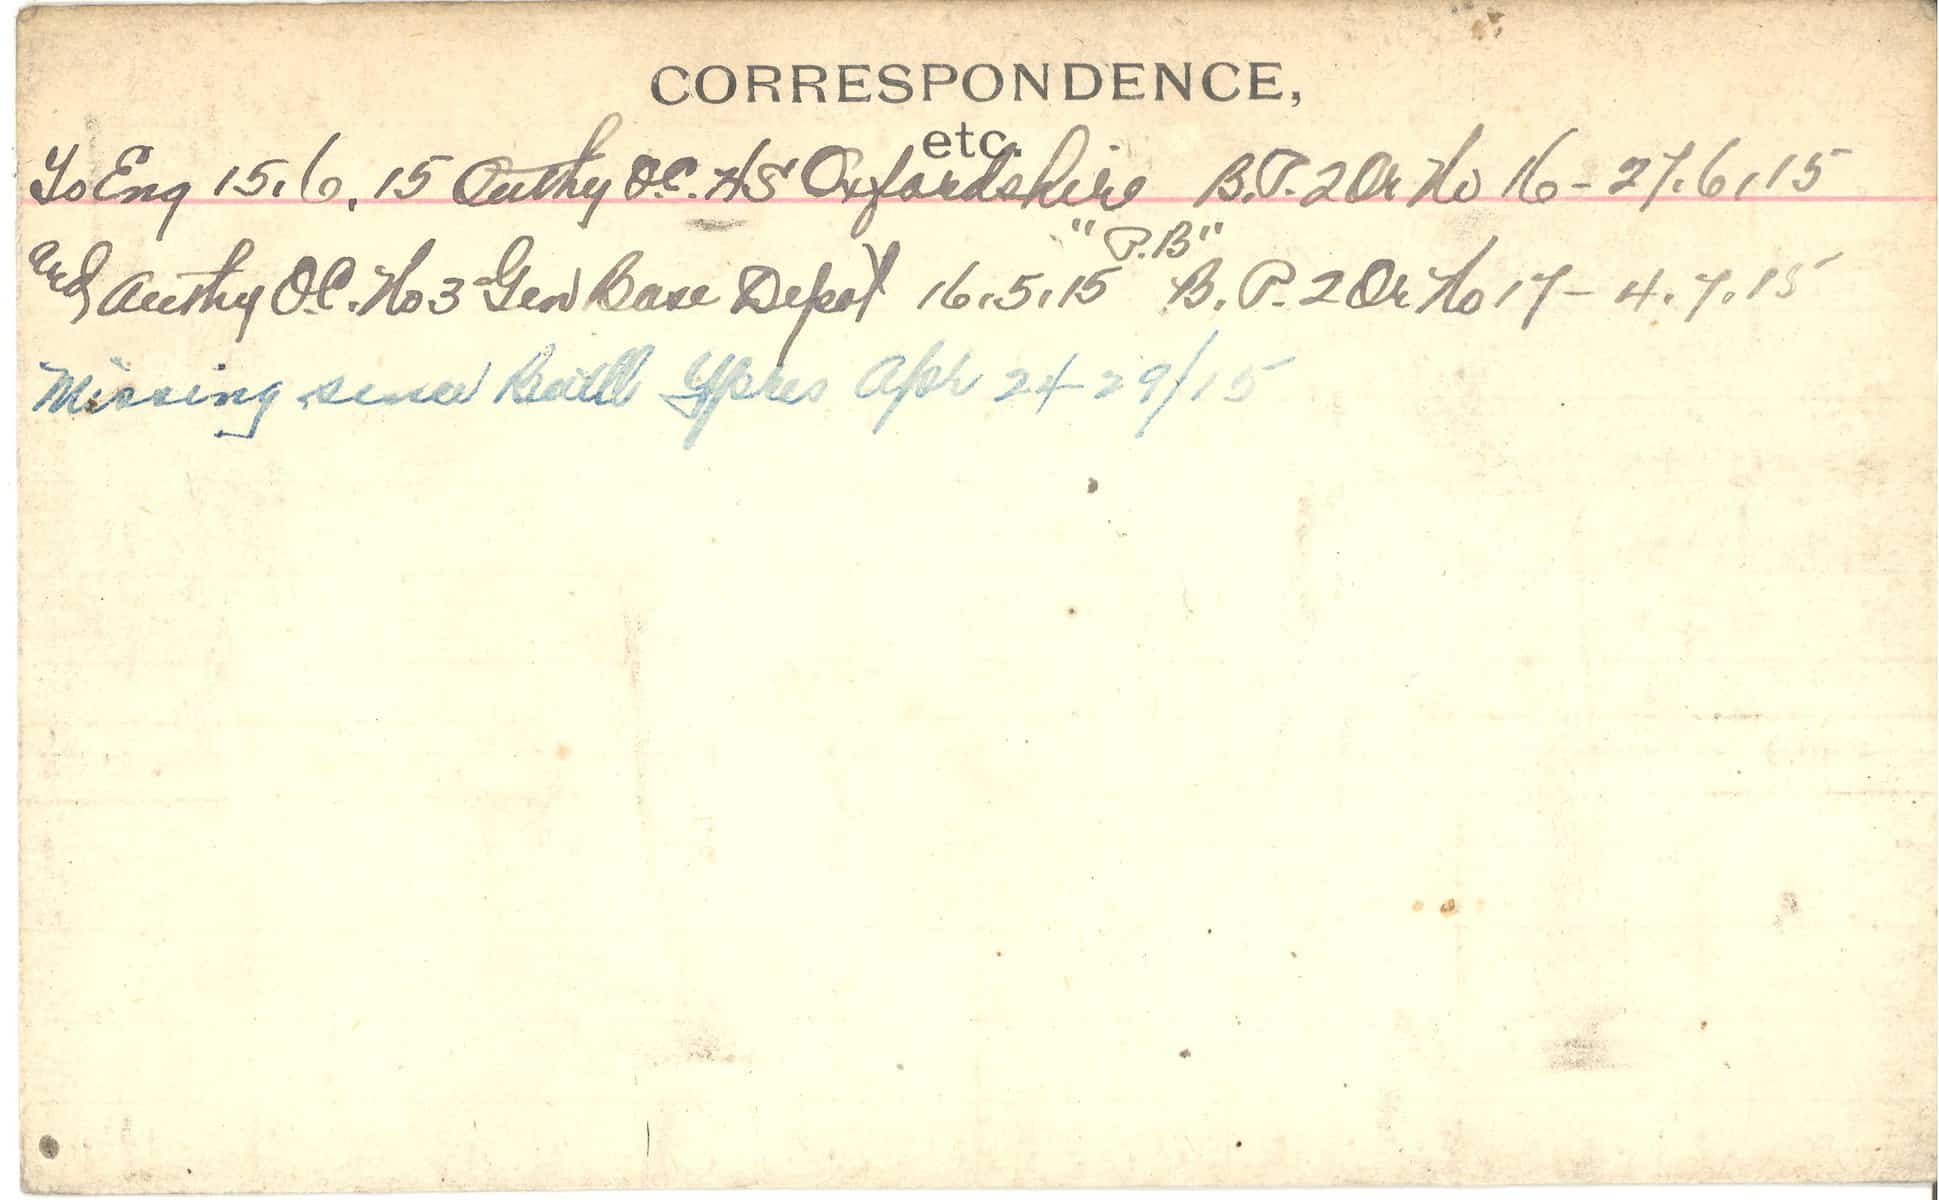 CORRESPONDENCE,
etc.
To Eng 15.6.15 Authy O.C. HS Oxfordshire B.P. 2 Or No 16 - 27.6.15
"P.B"
Authy O.C. No 3 Gen Base Depot 16.5.15 B.P. 2 Or No 17 - 4.7.15
Missing since Battl Ypres Apr 24-29/15